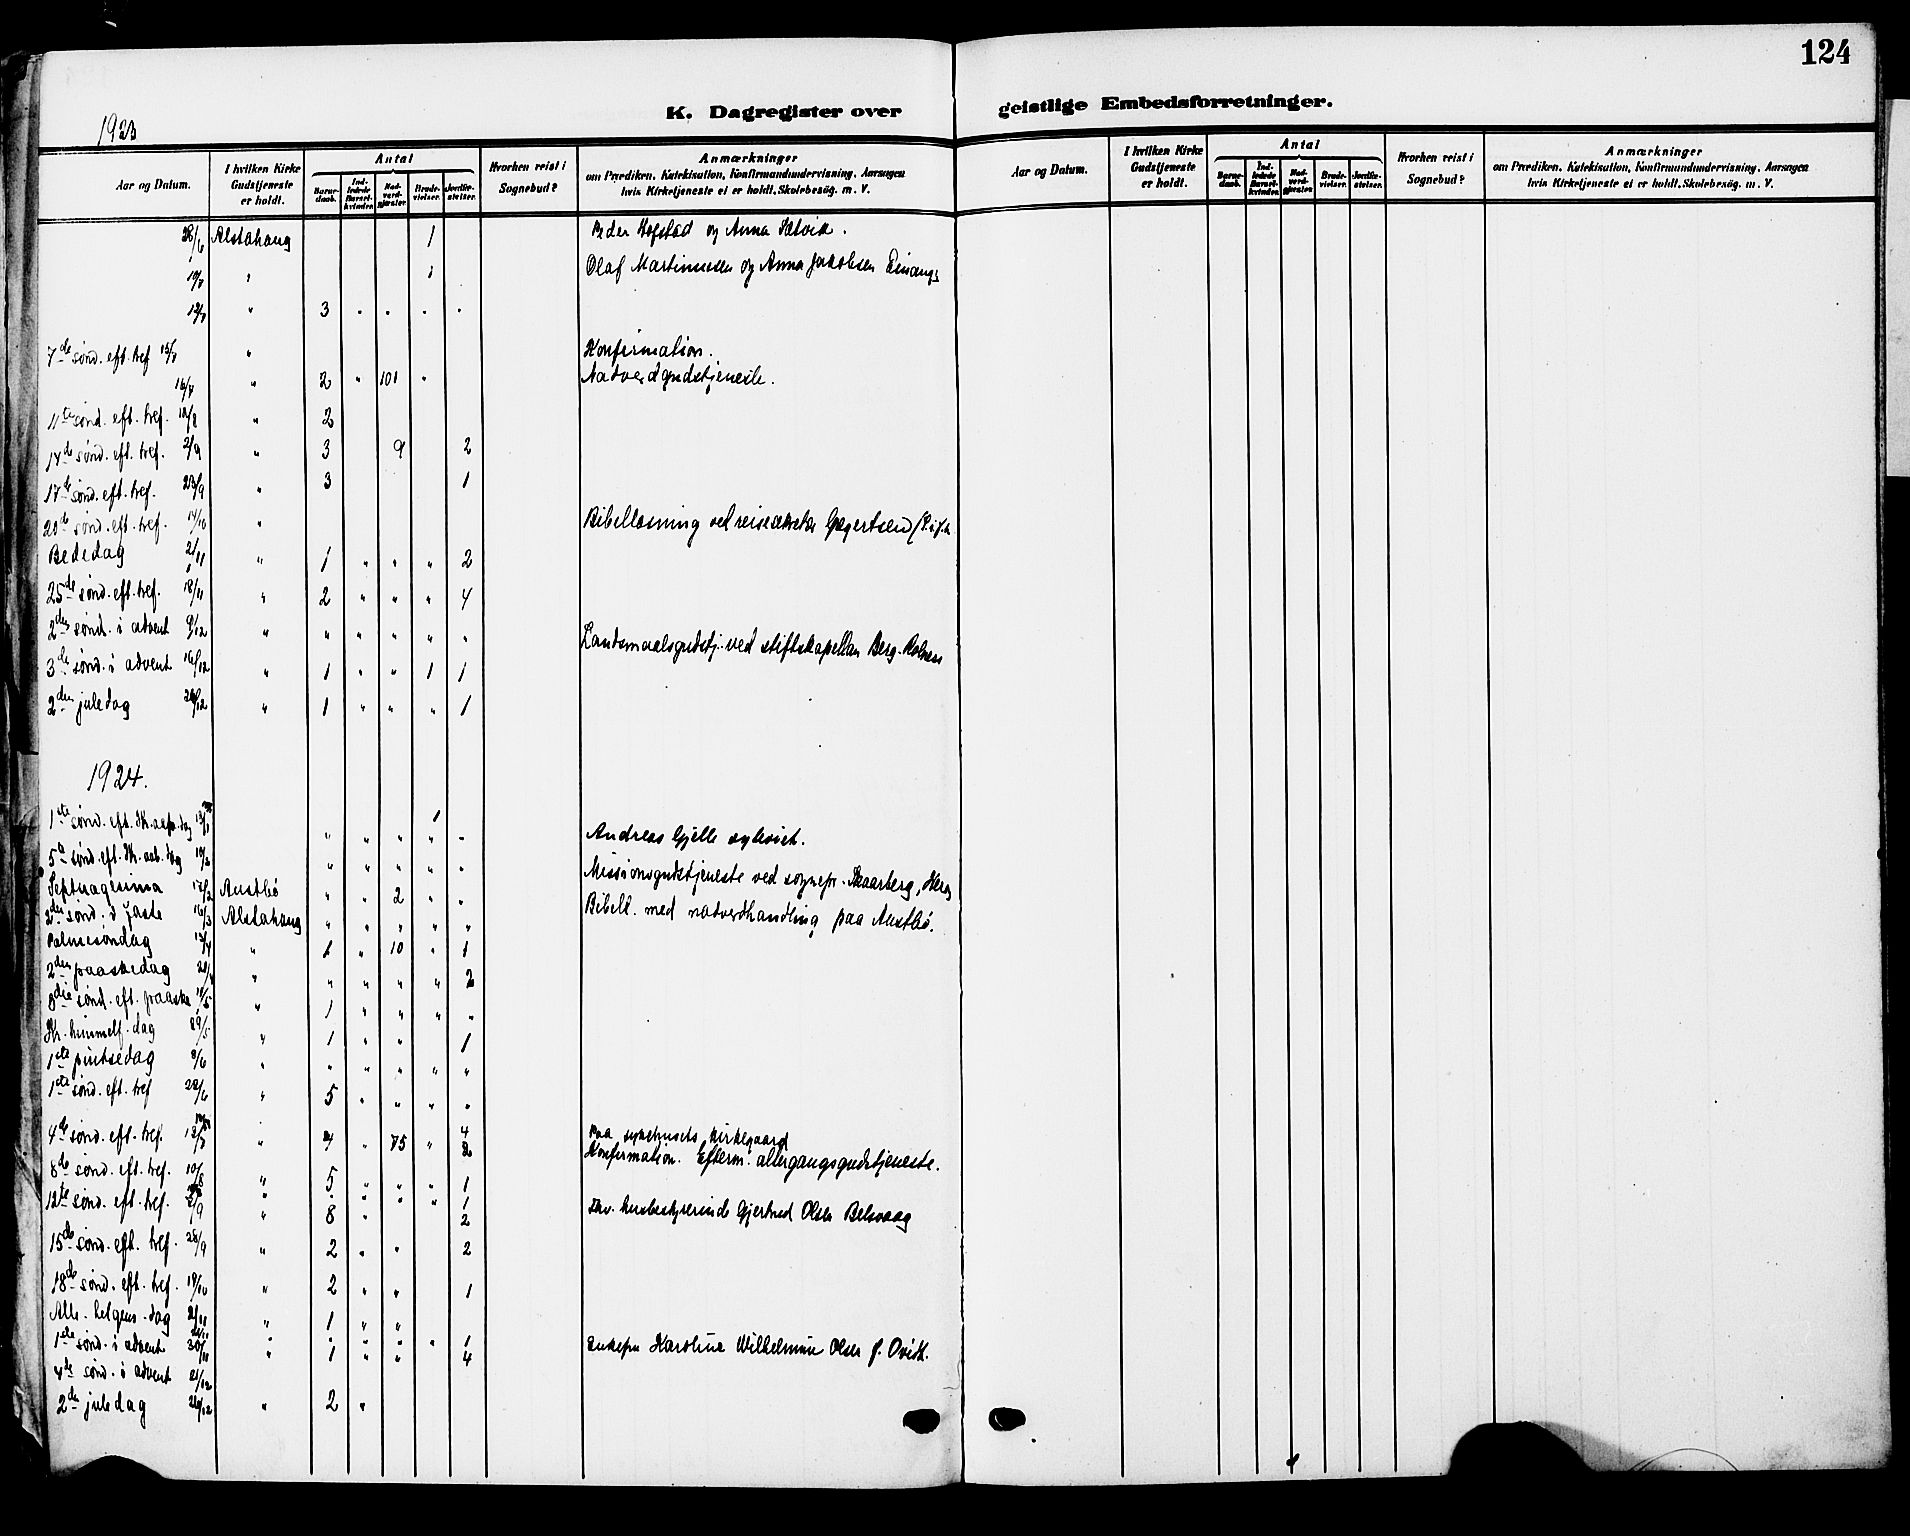 124
K. Dagregister over geistlige Embedsforretninger.
1923
Aar og Datum. I hvilken Kirke Gudstjeneste er holdt. Antal Barnedaab. Indledede Barselkvinder. Nadverdgjester. Brudevielser. Jordfæstelser. Hvorhen reist i Sognebud? Anmærkninger om Prædiken, Katekisation, Konfirmandundervisning, Aarsagen hvis Kirketjeneste ei er holdt, Skolebesøg. m. V.
Aar og Datum. I hvilken Kirke Gudstjeneste er holdt. Antal Barnedaab. Indledede Barselkvinder. Nadverdgjester. Brudevielser. Jordfæstelser. Hvorhen reist i Sognebud? Anmærkninger om Prædiken, Katekisation, Konfirmandundervisning, Aarsagen hvis Kirketjeneste ei er holdt, Skolebesøg. m. V.
28/6 Alstahaug 1 Peder Hofstad og Anna Sætvik.
10/7 " 1 Olaf Martinussen og Anna Jakobsen
12/7 " 3 " " " "
7de sønd. eft. tref 15/7 " Konfirmation.
16/7 " 2 " 101 " Nadverdgudstjeneste.
11te sønd. eft. tref. 12/8 " 2
14de sønd. eft. tref. 2/9 " 3 9 2
17de sønd. eft. tref. 23/9 " 3 1
20de sønd. eft. tref. 14/10 " Bibellæsning ved reisesekretær
Bededag 2/11 " 1 " " " 2
25de sønd. eft. tref. 18/11 " 2 " " " 4
2den sønd. i advent 9/12 " " " " " " Landsmaalsgudstj. ved stiftskapellan Berg-Rolness
3die sønd. i advent 16/12 " 1 " " 1 1
2den juledag 26/12 " 1 " " " 1
1924.
1ste sønd. eft. Kr. aab. dag 13/1 1 " " " " " Andreas Gjelle
5te sønd. eft. Kr. aab. dag 10/2 " " " " " Missionsgudstjeneste ved sognepr. Skaarberg, Herø
Septuagesima 17/2 Austbø " " 2 " " Bibell. med nadverdhandling paa Austbø.
2den sønd. i faste 16/3 Alstahaug " " " " "
Palmesøndag 13/4 " 1 " 10 " 1
2den paaskedag 21/4 " " " " " 2
3die sønd. eft. paaske 11/5 " 1 " " " "
Kr. himmelf. dag 29/5 " 1 " " 1
1ste pintsedag 8/6 " " " " " "
1ste sønd. eft. tref 22/6 " 5 " " " "
4de sønd. eft. tref. 13/7 " 4 " 75 " 4 2 Paa sykehusets kirkegaard
Konfirmation. Efterm. altergangsgudstjeneste.
8de sønd. eft. tref. 10/8 " 5 " " " 1
12te sønd. eft. tref. 7/9 " 8 " " " 1 2 husbestyrerinde Gjertrud Olsen Belsvaag
15de sønd. eft. tref. 28/9 " 2 " " 2
18de sønd. eft. tref. 19/10 " 2 " " 1
Alle helgens dag 2/11 " 1 " "
1ste sønd. i advent 30/11 " 1 " " " 1 4 Enkefru Karoline Wilhelmine Olsen f.
4de sønd. i advent 21/12
2den juledag 26/12 " 2 "